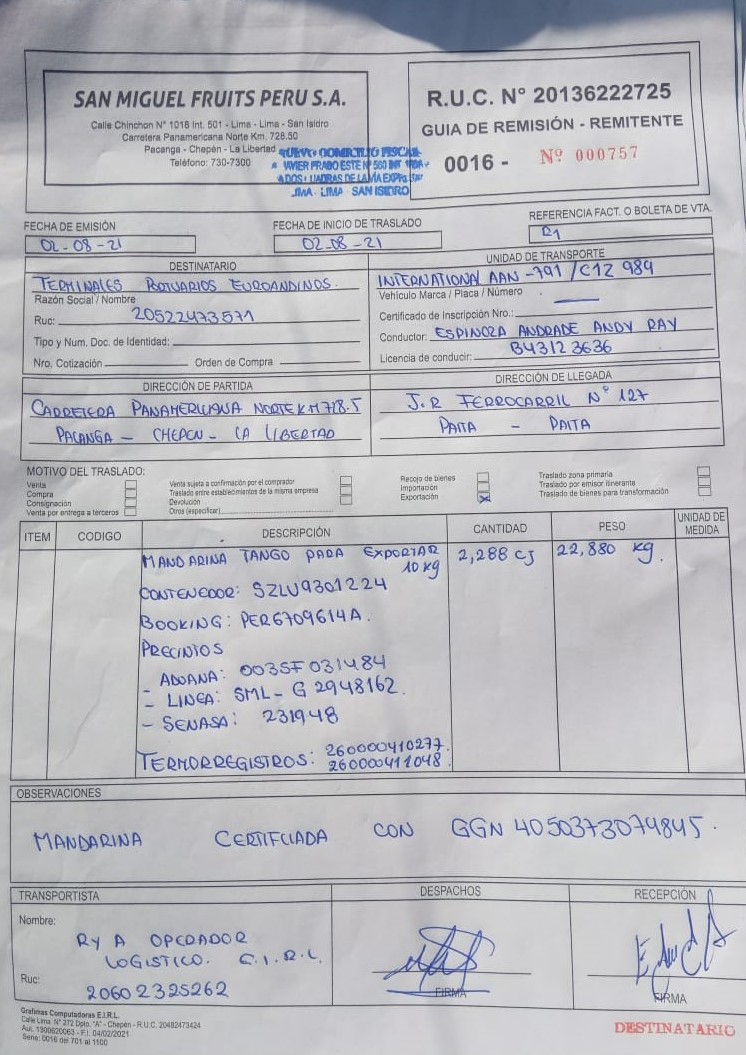 SAN MIGUEL FRUITS PERU S.A.
Calle Chinchon N° 1018 Int. 501 - Lima - Lima - San Isidro
Carretera Panamericana Norte Km. 728.50
Pacanga - Chepén - La Libertad
Teléfono: 730-7300
NUEVO DOMICILIO FISCAL
JAVIER PRADO ESTE Nº 560 INT
LIMA - LIMA SAN ISIDRO
R.U.C. N° 20136222725
GUIA DE REMISIÓN - REMITENTE
0016 - Nº 000757
FECHA DE EMISIÓN
02-08-21
FECHA DE INICIO DE TRASLADO
02-08-21
REFERENCIA FACT. O BOLETA DE VTA.
DESTINATARIO
TERMINALES PORTUARIOS EUROANDINOS.
Razón Social / Nombre
Ruc: 20522473571
Tipo y Num. Doc. de Identidad:
Nro. Cotización: Orden de Compra:
UNIDAD DE TRANSPORTE
INTERNATIONAL AAN-791 / C1Z 989
Vehículo Marca / Placa / Número
Certificado de Inscripción Nro.:
Conductor: ESPINOZA ANDRADE ANDY RAY
Licencia de conducir: B43123636
DIRECCIÓN DE PARTIDA
CARRETERA PANAMERICANA NORTE KM 728.5
PACANGA - CHEPEN - LA LIBERTAD
DIRECCIÓN DE LLEGADA
J.R FERROCARRIL N° 127
PAITA - PAITA
MOTIVO DEL TRASLADO:
Venta
Compra
Consignación
Venta por entrega a terceros
Venta sujeta a confirmación por el comprador
Traslado entre establecimientos de la misma empresa
Devolución
Otros (especificar)
Recojo de bienes
Importación
Exportación X
Traslado zona primaria
Traslado por emisor itinerante
Traslado de bienes para transformación
ITEM CODIGO DESCRIPCIÓN CANTIDAD PESO UNIDAD DE MEDIDA
MANDARINA TANGO PARA EXPORTAR 2,288 CJ 22,880 kg.
10 kg
CONTENEDOR: SZLU9301224
BOOKING: PER6709614A.
PRECINTOS
- ADUANA: 0035F031484
- LINEA: SML-G 2948162.
- SENASA: 231948
TERMORREGISTROS: 260000410277.
260000411048.
OBSERVACIONES
MANDARINA CERTIFCIADA CON GGN 4050373074845.
TRANSPORTISTA
Nombre:
RY A OPERADOR
LOGISTICO. E.I.R.L.
Ruc: 20602325262
DESPACHOS
FIRMA
RECEPCIÓN
FIRMA
Grafimas Computadoras E.I.R.L.
Calle Lima N° 272 Dpto. "A" - Chepén - R.U.C. 20482473424
Aut. 1300620063 - F.I. 04/02/2021
Serie: 0016 del 701 al 1100
DESTINATARIO